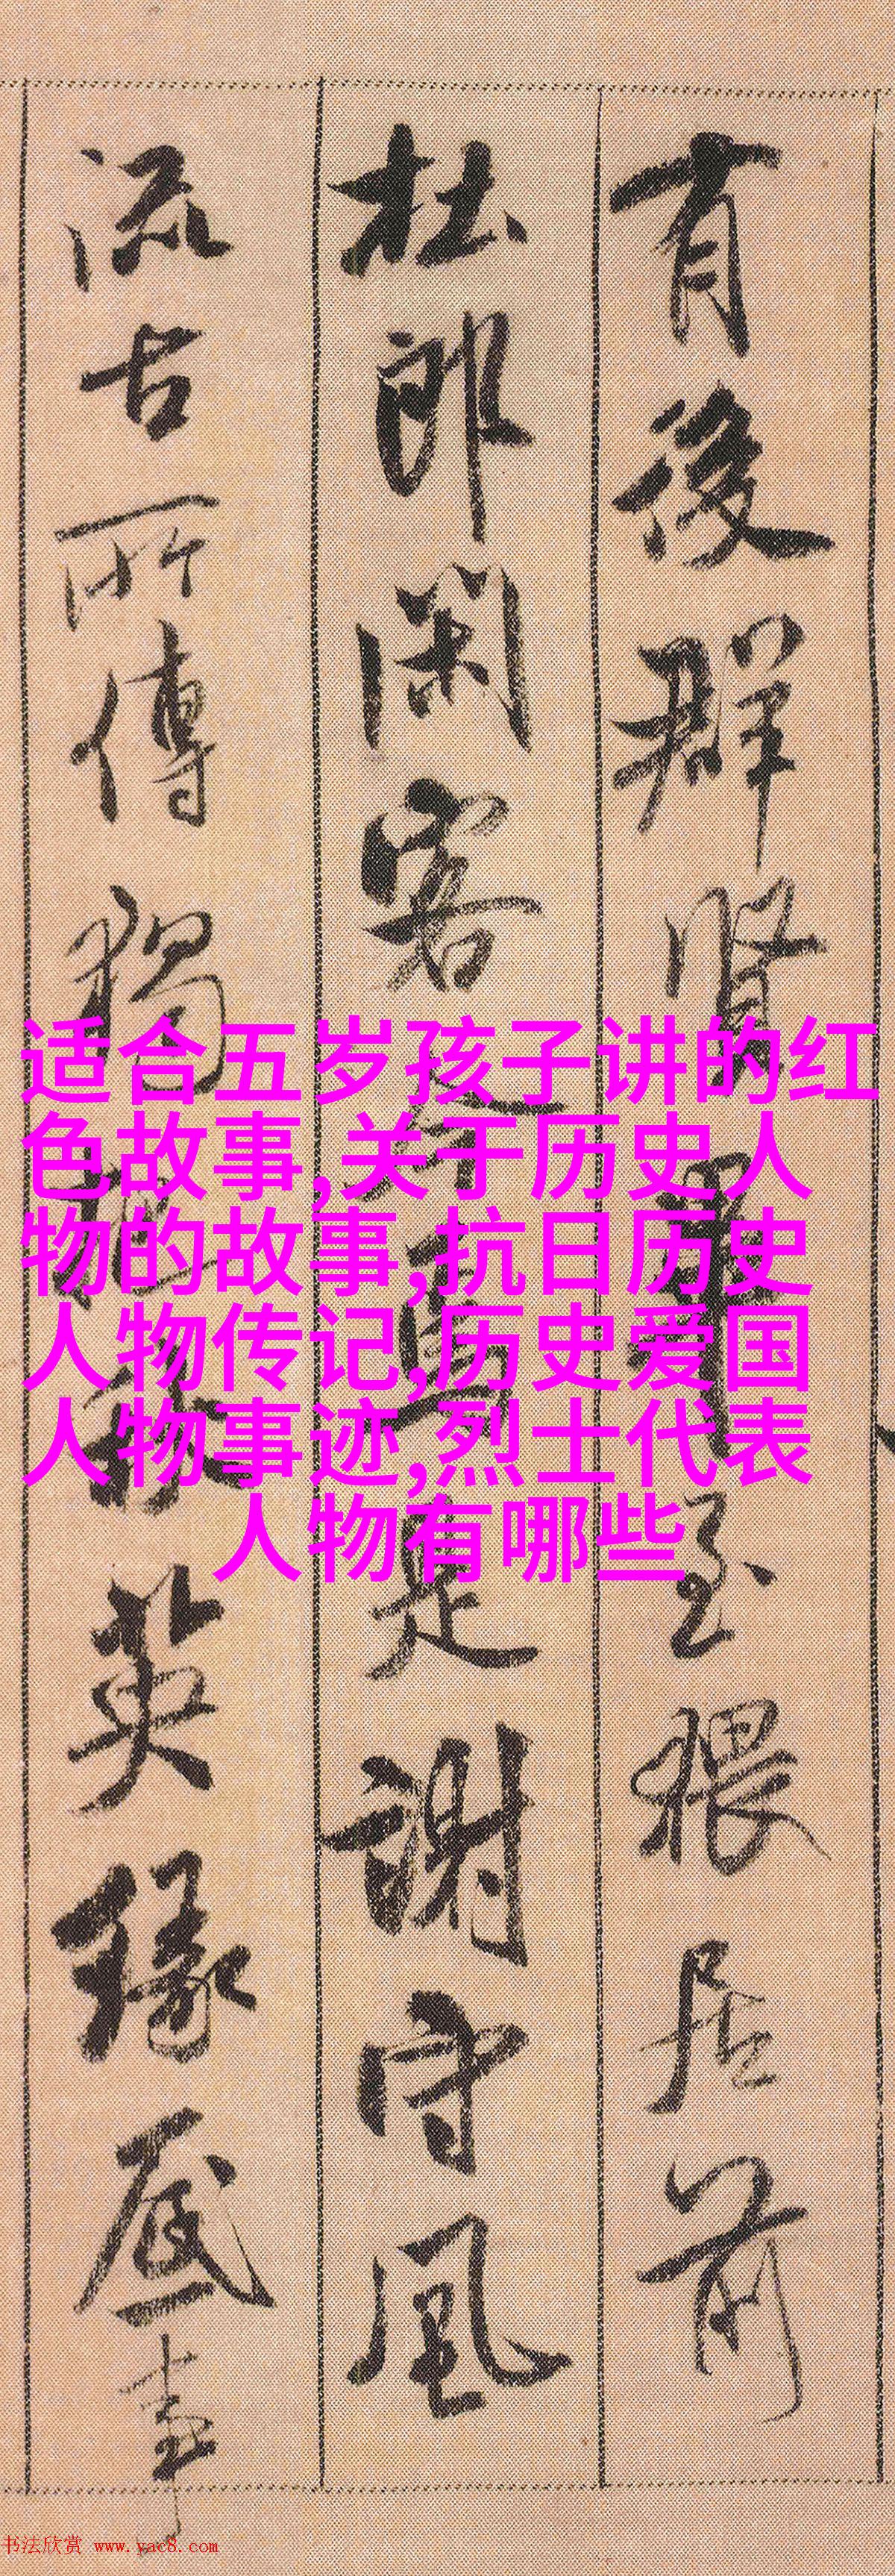 有後群賢畢至猥居前
杜郎閑客今焉是謝守風
流古所傳獨把秋英緣底事
适合五岁孩子讲的红
色故事,关于历史人
物的故事,抗日历史
人物传记,历史爱国
人物事迹,烈士代表
人物有哪些
书法欣赏 www.yac8.com